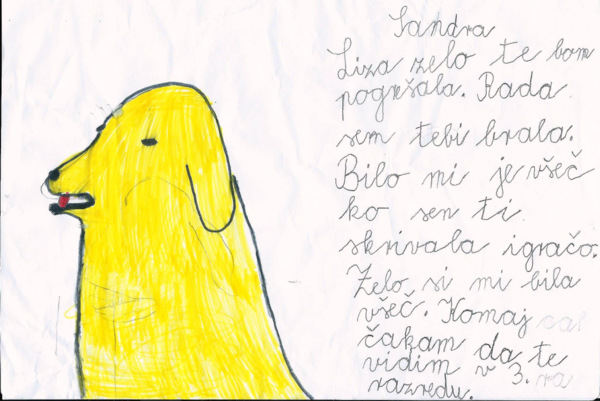 Sandra
Liza zelo te bom
pogrešala. Rada
sem tebi brala.
Bilo mi je všeč
ko sen ti
skrivala igračo.
Zelo si mi bila
všeč. Komaj
čakam da te
vidim v 3.
razredu.